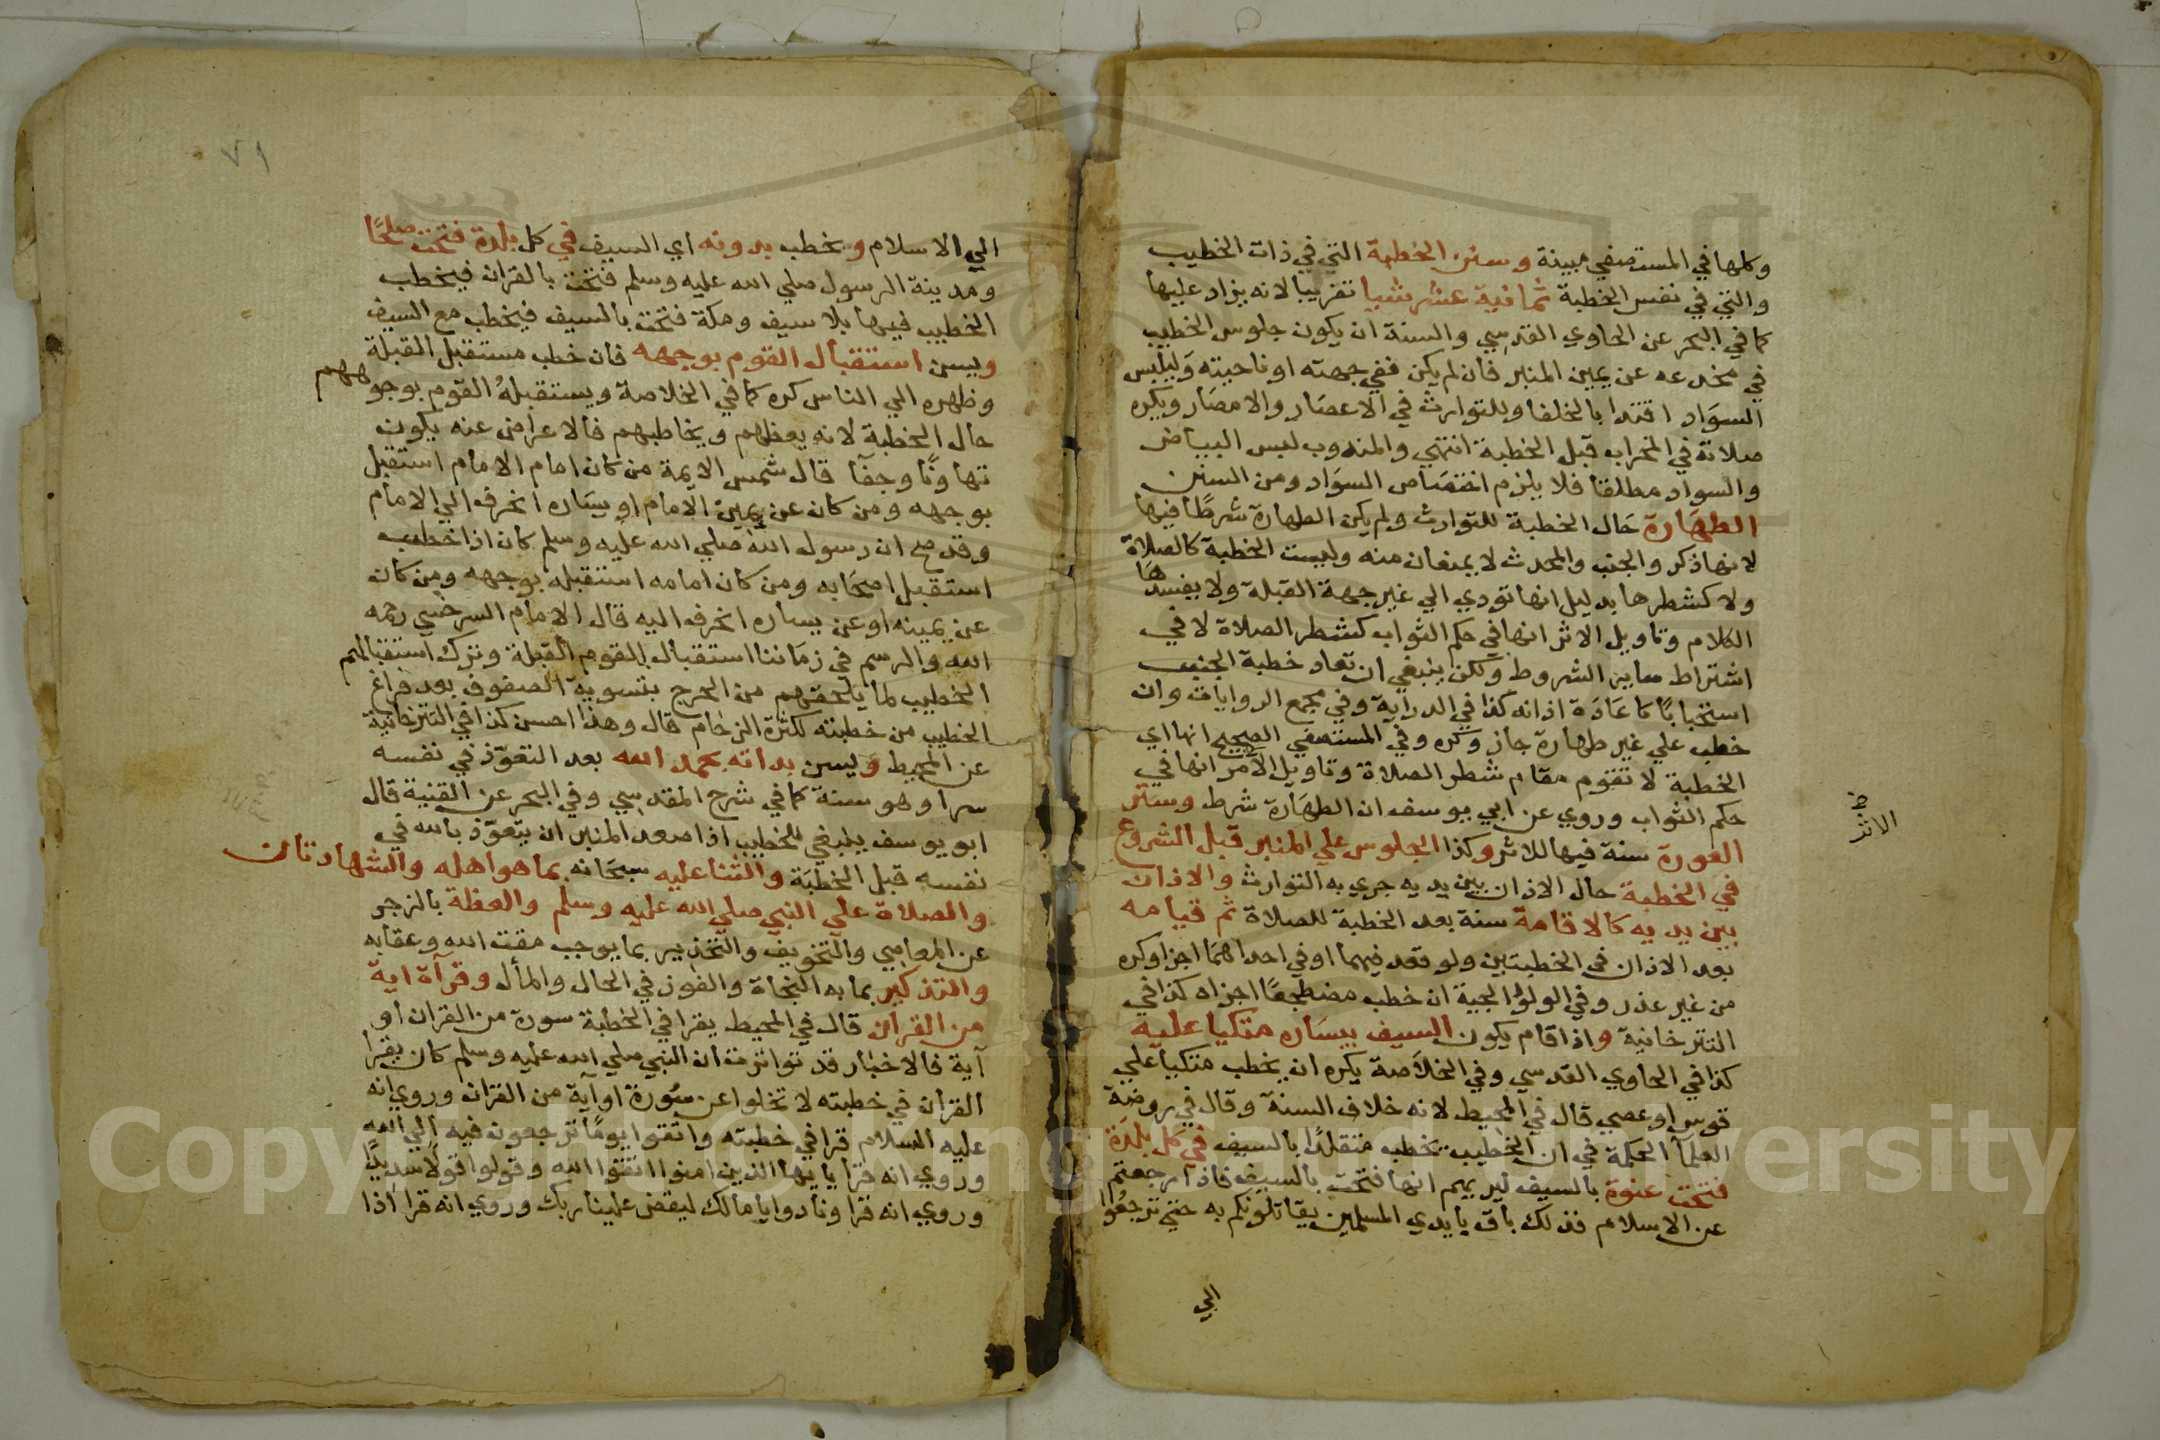 وكلها في المستصفي مبينة وسنن الخطبة التي في ذات الخطيب
والتي في نفس الخطبة ثمانية عشر شيا تقريبا لانه يزاد عليها
كما في البحر عن الحاوي القدسي والسنة ان يكون جلوس الخطيب
في مخدعه عن يمين المنبر فان لم يكن ففي جهته او ناحيته وليلبس
السواد اقتدا بالخلفا وللتوارث في الاعصار والامصار ويكره
صلاته في المحراب قبل الخطبة انتهي والمندوب لبس البياض
والسواد مطلقا فلا يلزم اختصاص السواد ومن السنن
الطهارة حال الخطبة للتوارث ولم يكن الطهارة شرطا فيها
لانها ذكر والجنب والمحدث لا يمنعان منه وليست الخطبة كالصلاة
ولا كشطرها بدليل انها تودي الي غير جهة القبلة ولا يفسدها
الكلام وتاويل الاثر انها في حكم الثواب كشطر الصلاة لا في
اشتراط ساير الشروط ولكن ينبغي ان تعاد خطبة الجنب
استحبابا كاعادة اذانه كذا في الدراية وفي مجمع الروايات وان
خطب علي غير طهارة جاز وكره وفي المستصفي الصحيح انها اي
الخطبة لا تقوم مقام شطر الصلاة وتاويل الامر انها في
حكم الثواب وروي عن ابي يوسف ان الطهارة شرط وستر
العورة سنة فيها للاثر وكذا الجلوس علي المنبر قبل الشروع
في الخطبة حال الاذان بين يديه جري به التوارث والاذان
بين يديه كالاقامة سنة بعد الخطبة للصلاة ثم قيامه
بعد الاذان في الخطبتين ولو قعد فيهما او في احداهما اجزا وكره
من غير عذر وفي الولوالجية ان خطب مضطجعا اجزاه كذا في
التترخانية واذا قام يكون السيف بيساره متكيا عليه
كذا في الحاوي القدسي وفي الخلاصة يكره ان يخطب متكيا علي
قوس او عصي قال في المحيط لانه خلاف السنة وقال في روضة
العلمآ الحكمة في ان الخطيب يخطب متقلدا بالسيف في كل بلدة
فتحت عنوة بالسيف ليريهم انها فتحت بالسيف فاذا رجعتم
عن الاسلام فذلك باق بايدي المسلمين يقاتلونكم به حتي ترجعوا
الي
خ
الاثر
٧١
الي الاسلام ويخطب بدونه اي السيف في كل بلدة فتحت صلحا
ومدينة الرسول صلي الله عليه وسلم فتحت بالقران فيخطب
الخطيب فيها بلا سيف ومكة فتحت بالسيف فيخطب مع السيف
ويسن استقبال القوم بوجهه فان خطب مستقبل القبلة
وظهره الي الناس كره كما في الخلاصة ويستقبله القوم بوجوههم
حال الخطبة لانه يعظهم ويخاطبهم فالاعراض عنه يكون
تهاونا وجفآ قال شمس الايمة من كان امام الامام استقبل
بوجهه ومن كان عن يمين الامام او يساره انحرف الي الامام
وقد صح ان رسول الله صلي الله عليه وسلم كان اذا خطب
استقبل اصحابه ومن كان امامه استقبله بوجهه ومن كان
عن يمينه او عن يساره انحرف اليه قال الامام السرخسي رحمه
الله والرسم في زماننا استقبال القوم القبلة وترك استقبالهم
الخطيب لما يلحقهم من الحرج بتسوية الصفوف بعد فراغ
الخطيب من خطبته لكثرة الزحام قال وهذا احسن كذا في التترخانية
عن المحيط ويسن بداته بحمد الله بعد التعوذ في نفسه
سرا وهو سنة كما في شرح المقدسي وفي البحر عن القنية قال
ابو يوسف ينبغي للخطيب اذا صعد المنبر ان يتعوذ بالله في
نفسه قبل الخطبة والثنا عليه سبحانه بما هو اهله والشهادتان
والصلاة علي النبي صلي الله عليه وسلم والعظة بالزجر
عن المعاصي والتخويف والتحذير بما يوجب مقت الله وعقابه
والتذكير بما به النجاة والفوز في الحال والمأل وقرآة اية
من القران قال في المحيط يقرا في الخطبة سورة من القران او
آية فالاخبار قد تواترت ان النبي صلي الله عليه وسلم كان يقرا
القران في خطبته لا تخلوا عن سورة او آية من القران وروي انه
عليه السلام قرا في خطبته واتقوا يوما ترجعون فيه الي الله
وروي انه قرا يا يها الذين امنوا اتقوا الله وقولوا قولا سديدا
وروي انه قرا ونادوا يا مالك ليقض علينا ربك وروي انه قرا اذا